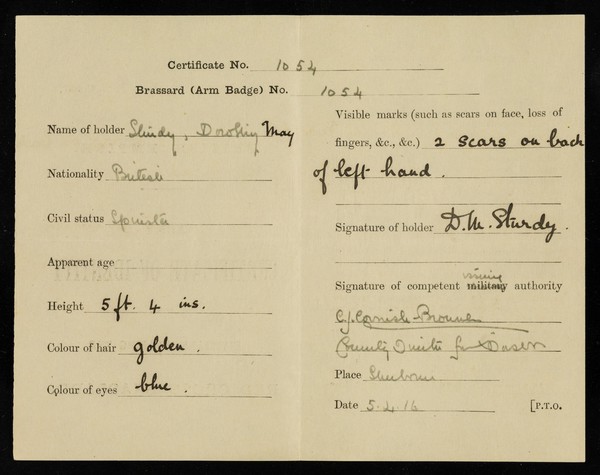 Certificate No. 1054
Brassard (Arm Badge) No. 1054
Name of holder Sturdy, Dorothy May
Nationality British
Civil status Spinster
Apparent age
Height 5 ft. 4 ins.
Colour of hair golden.
Colour of eyes blue.
Visible marks (such as scars on face, loss of
fingers, &c., &c.) 2 scars on back
of left hand.
Signature of holder D. M. Sturdy.
Signature of competent military authority
C. J. Cornish-Browne
County Director for
Place Sherborne
Date 5.4.16
[P.T.O.